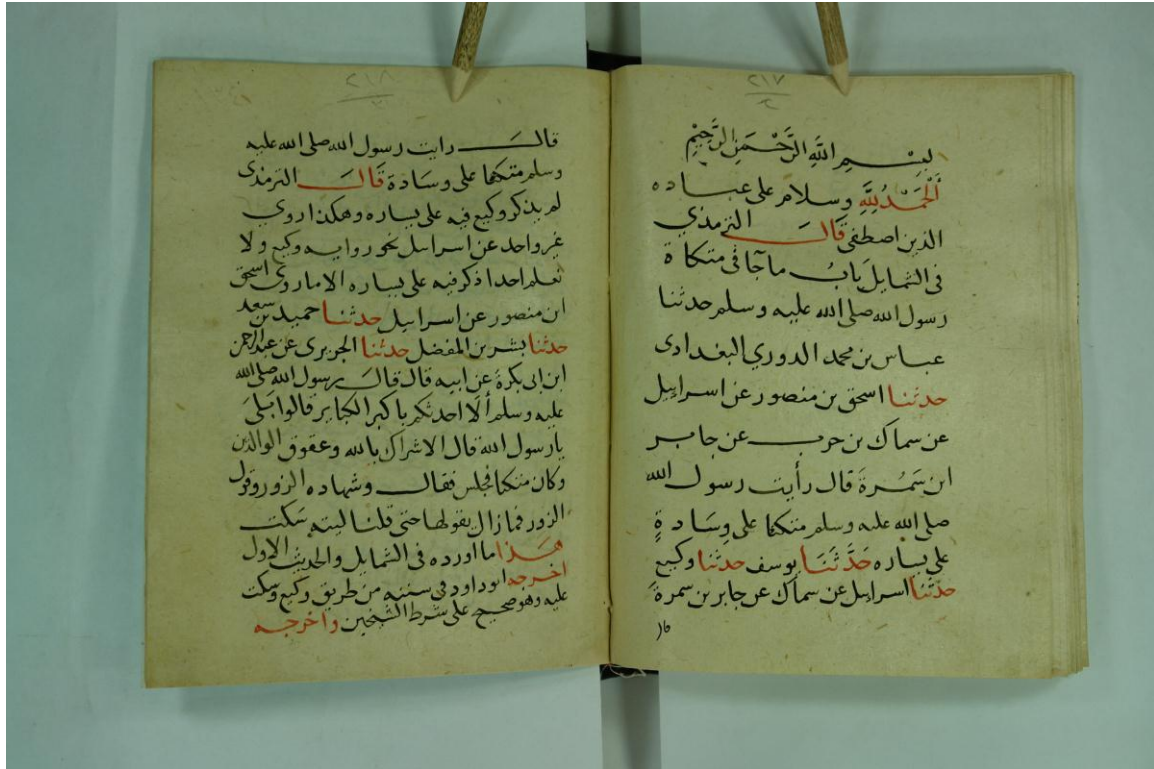 ٢١٧
بِسْمِ اللَّهِ الرَّحْمَنِ الرَّحِيْمِ
اَلْحَمْدُ لِلَّهِ وسلام على عباده
الذين اصطفى قال الترمذي
فى الشمايل بَابُ ماجآ فى متكاة
رسول الله صلى الله عليه وسلم حدثنا
عباس بن محمد الدوري البغدادى
حدثنا اسحق بن منصور عن اسرايل
عن سماك بن حرب عن جابر
ابن سَمُرةَ قال رأيت رسول الله
صلى الله عليه وسلم متكئا على وِسَادةٍ
على يساره حَدَّثَنَا يوسف حدثنا وكيع
حدثنا اسرايل عن سماك عن جابر بن سمرةَ
٢١٨
قال رايت رسول الله صلى الله عليه
وسلم متكئا على وسَادة قَالَ الترمذى
لم يذكر وكيع فيه على يساره وهكذا روى
غير واحد عن اسرايل نحو روايه وكيع ولا
نعلم احدا ذكر فيه على يساره الا ماروى اسحق
ابن منصور عن اسرايل حدثنا حميد بن سعد
حدثنا بشر بن المفضل حدثنا الجريرى عن عبدالرحمن
ابن ابى بكرةَ عن ابيه قال قال رسول الله صلى الله
عليه وسلم ألا احدثكم باكبر الكباير قالوا بَلَى
يارسول الله قال الاشراك بالله وعقوق الوالدين
وكان متكئا فجلس فقال وشهاده الزور وقول
الزور فمازال يقولها حتى قلنا ليته سكت
هَذا ما اورده فى الشمايل والحديث الاول
اخرجه ابو داود فى سننه من طريق وكيع وسكت
عليه وهو صحيح على شرط الشيخين واخرجه